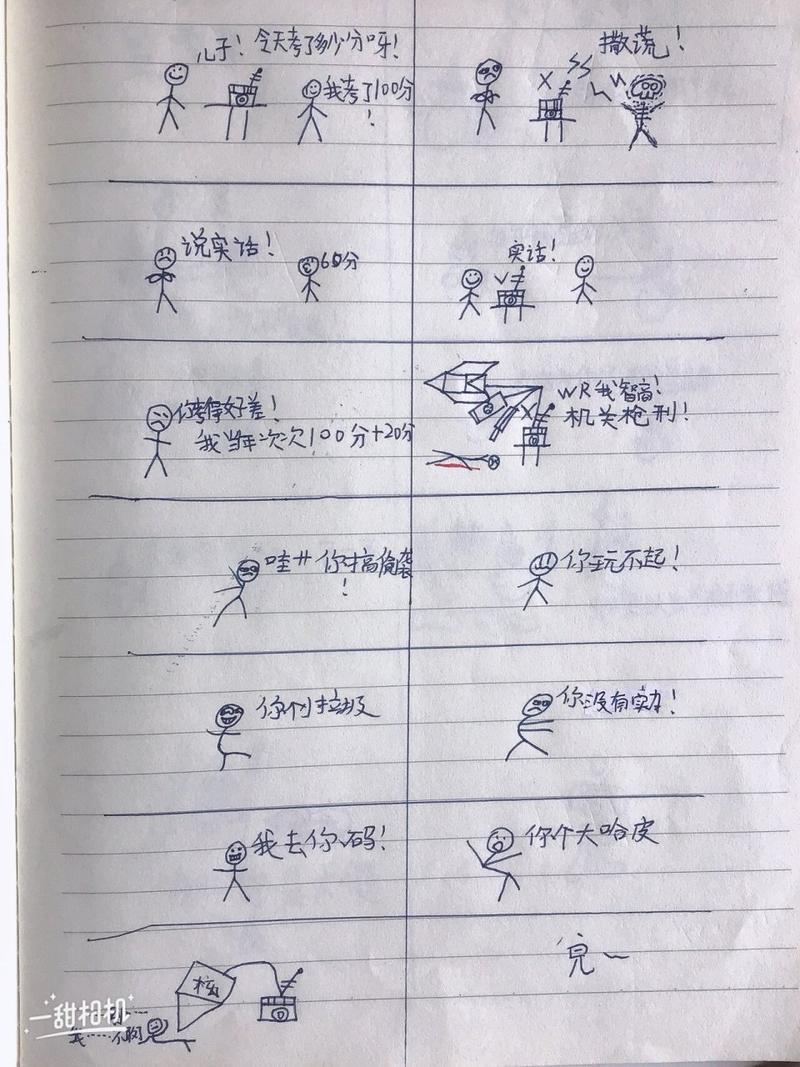 儿子！今天考了多少分呀！
我考了100分
！
撒谎！
说实话！
60分
实话！
你考得好差！
我当年次次100分+20分
WR我智高！
机关枪刑！
哇艹你才搞偷袭
！
你玩不起！
你个垃圾
你没有实力！
我去你码！
你个大哈皮
核
完~
一甜相机